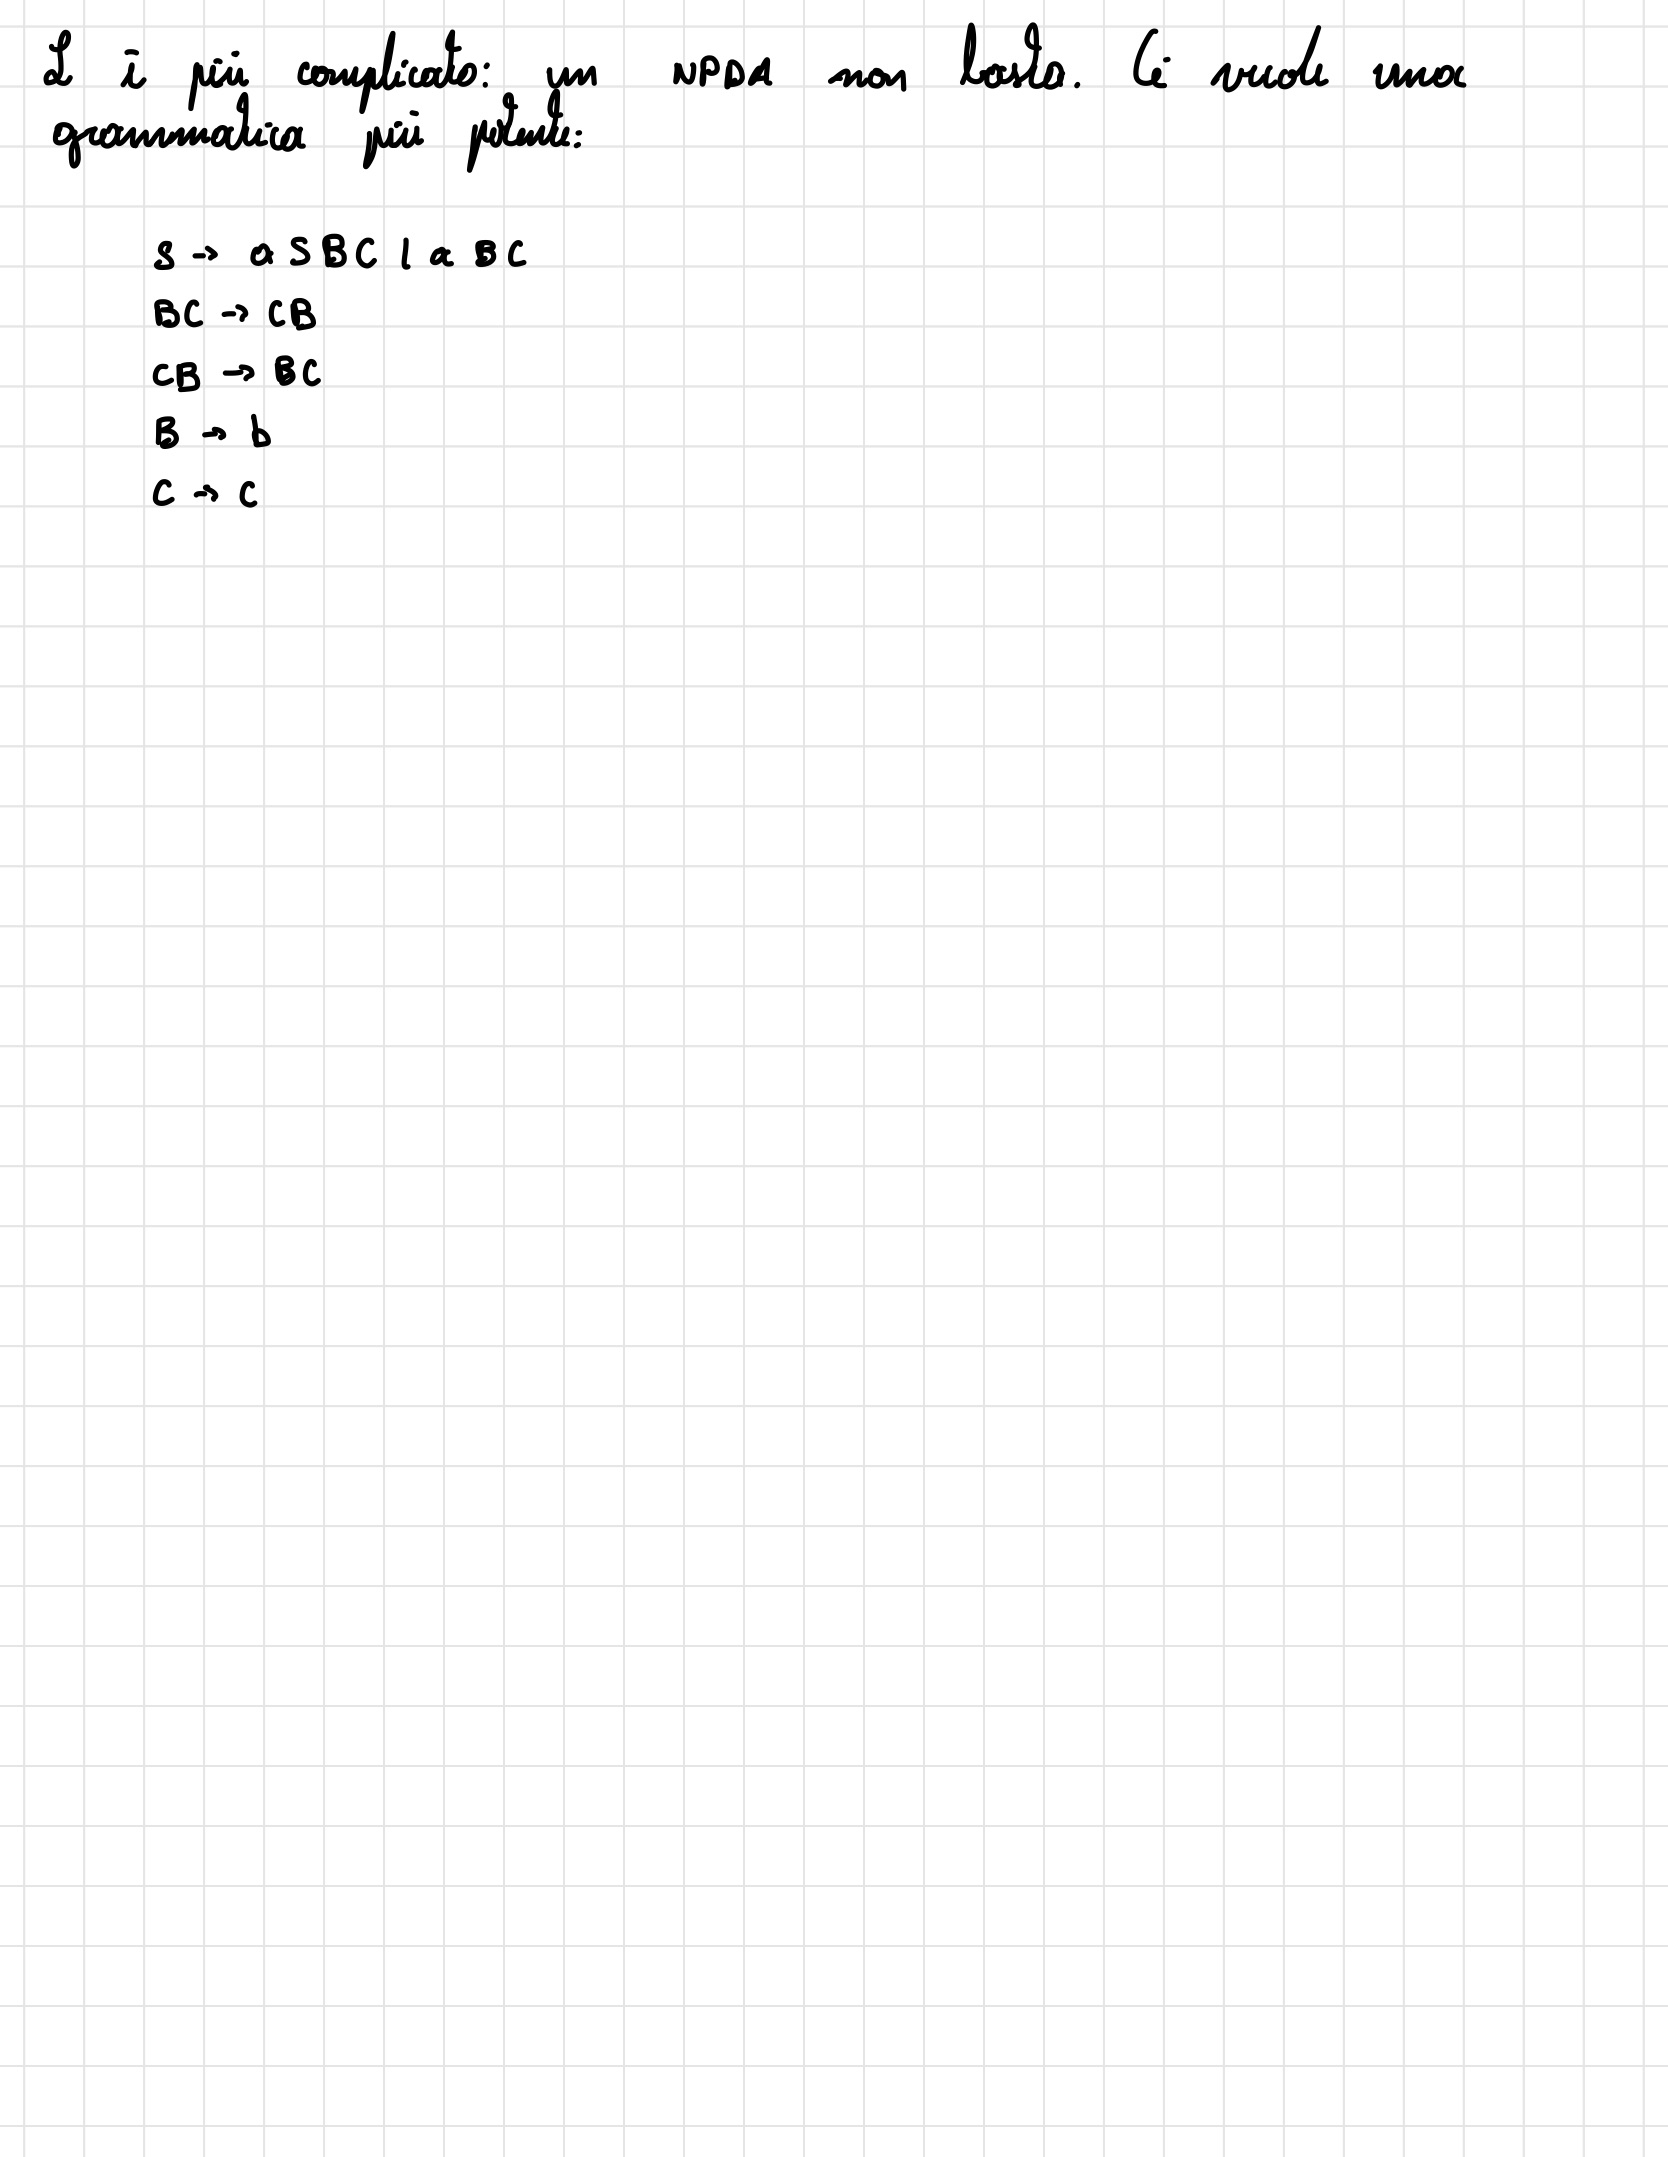 L è più complicato: un NPDA non basta. Ci vuole una
grammatica più potente:
S → a S B C | a B C
BC → CB
CB → BC
B → b
C → c